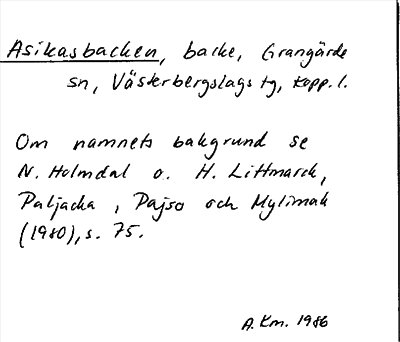 Asikasbacken, backe, Grangärde
sn, Västerbergslags tg, kopp. l.
Om namnets bakgrund se
N. Holmdal o. H. Littmarck,
Paljacka, Pajso och Mylimak
(1980), s. 75.
A. Km. 1986